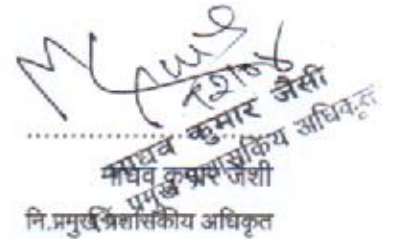 माधव कुमार जैसी
प्रमुख प्रशासकिय अधिकृत
..............................
माधव कुमार जैशी
नि.प्रमुख प्रशासकीय अधिकृत